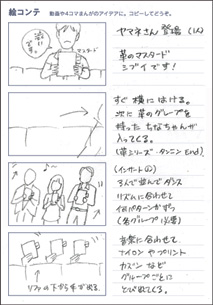 絵コンテ
動画や4コマまんがのアイデアに。コピーしてどうぞ。
渋いです!
マスタード
ヤマネさん登場 (1人)
革のマスタード
シブイです!
すぐ横にはける。
次に革のグレープを
持ったちなちゃんが
入ってくる。
(革シリーズ タンニン End)
(インサートの)
3人で並んでダンス
リズムに合わせて
(各グループ必要)
音楽に合わせて
ナイロンやプリント
カスベンなど
グループごとに
とび出てくる。
ソファの下から手が出る